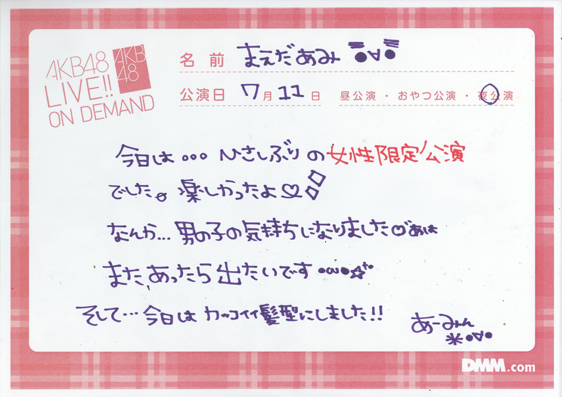 AKB48
LIVE!!
ON DEMAND
AKB
48
名前 まえだあみ
公演日 7月11日 昼公演・おやつ公演・夜公演
今日は...ひさしぶりの女性限定公演
でした。楽しかったよ♡
なんか...男の子の気持ちになりました♡あは
またあったら出たいです •ω•☆
そして...今日はカッコイイ髪型にしました!!
あーみん
DMM.com